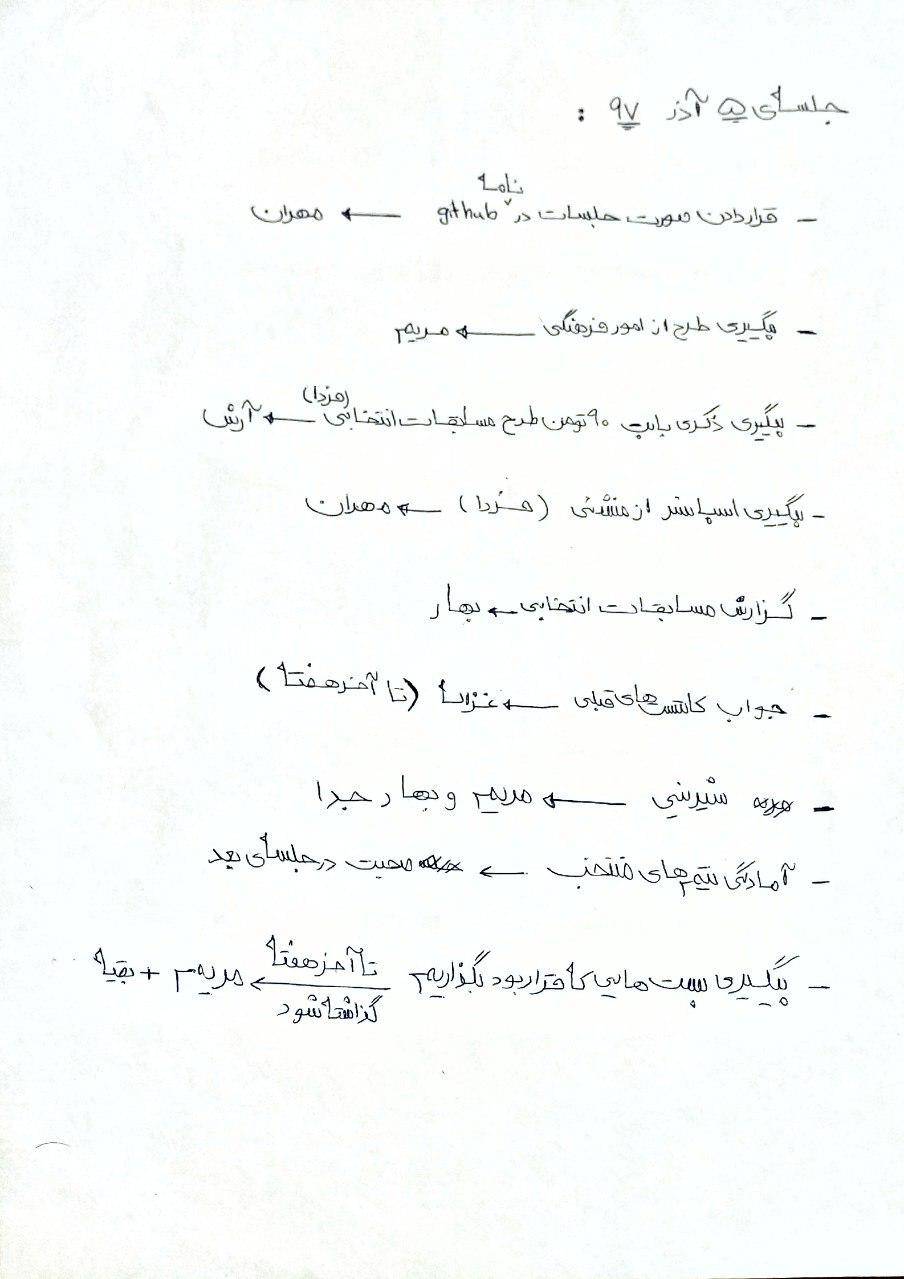 جلسه‌ی ۵ آذر ۹۷ :
- قرار دادن صورت جلسات در github نامه ← مهران
- پیگیری طرح از امور فرهنگی ← مریم
- پیگیری دکری بابت ۹۰ تومن طرح مسابقات انتخابی (فردا) ← آرش
- پیگیری اسپانسر از منشئی (فردا) ← مهران
- گزارش مسابقات انتخابی ← بهار
- جواب کانتست های قبلی ← غزاله (تا آخر هفته)
- شیرینی ← مریم و بهار جدا
- آمادگی تیم های منتخب ← صحبت در جلسه‌ی بعد
- پیگیری پست هایی که قرار بود بگذاریم ← تا آخر هفته گذاشته شود مریم + بقیه